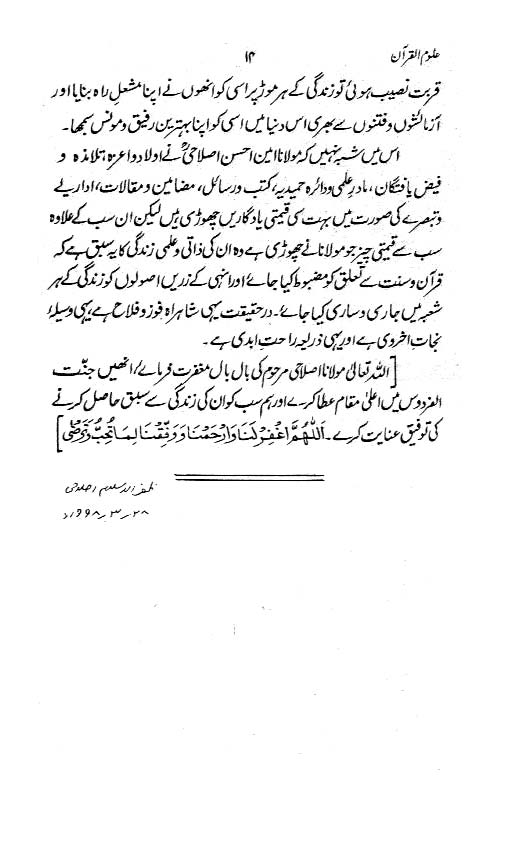 علوم القرآن
۱۴
قربت نصیب ہوئی تو زندگی کے ہر موڑ پر اسی کو انھوں نے اپنا مشعلِ راہ بنایا اور
آزمائشوں و فتنوں سے بھری اس دنیا میں اسی کو اپنا بہترین رفیق و مونس سمجھا۔
اس میں شبہ نہیں کہ مولانا امین احسن اصلاحیؒ نے اولاد و اعزہ، تلامذہ و
فیض یافتگان، مادرِ علمی و دائرہ حمیدیہ، کتب و رسائل، مضامین و مقالات، اداریے
و تبصرے کی صورت میں بہت سی قیمتی یادگاریں چھوڑی ہیں لیکن ان سب کے علاوہ
سب سے قیمتی چیز جو مولانا نے چھوڑی ہے وہ ان کی ذاتی و علمی زندگی کا یہ سبق ہے کہ
قرآن و سنت سے تعلق کو مضبوط کیا جائے اور انہی کے زریں اصولوں کو زندگی کے ہر
شعبہ میں جاری و ساری کیا جائے۔ درحقیقت یہی شاہراہِ فوز و فلاح ہے یہی وسیلۂ
نجات اخروی ہے اور یہی ذریعۂ راحت ابدی ہے۔
[اللہ تعالیٰ مولانا اصلاحی مرحوم کی بال بال مغفرت فرمائے، انھیں جنّت
الفردوس میں اعلیٰ مقام عطا کرے اور ہم سب کو ان کی زندگی سے سبق حاصل کرنے
کی توفیق عنایت کرے۔ اَللّٰهُمَّ اغْفِرْ لَنَا وَارْحَمْنَا وَوَفِّقْنَا لِمَا تُحِبُّ وَتَرْضٰى]
ظفر الاسلام اصلاحی
۲۸ ؍ ۳ ؍ ۱۹۹۸ء